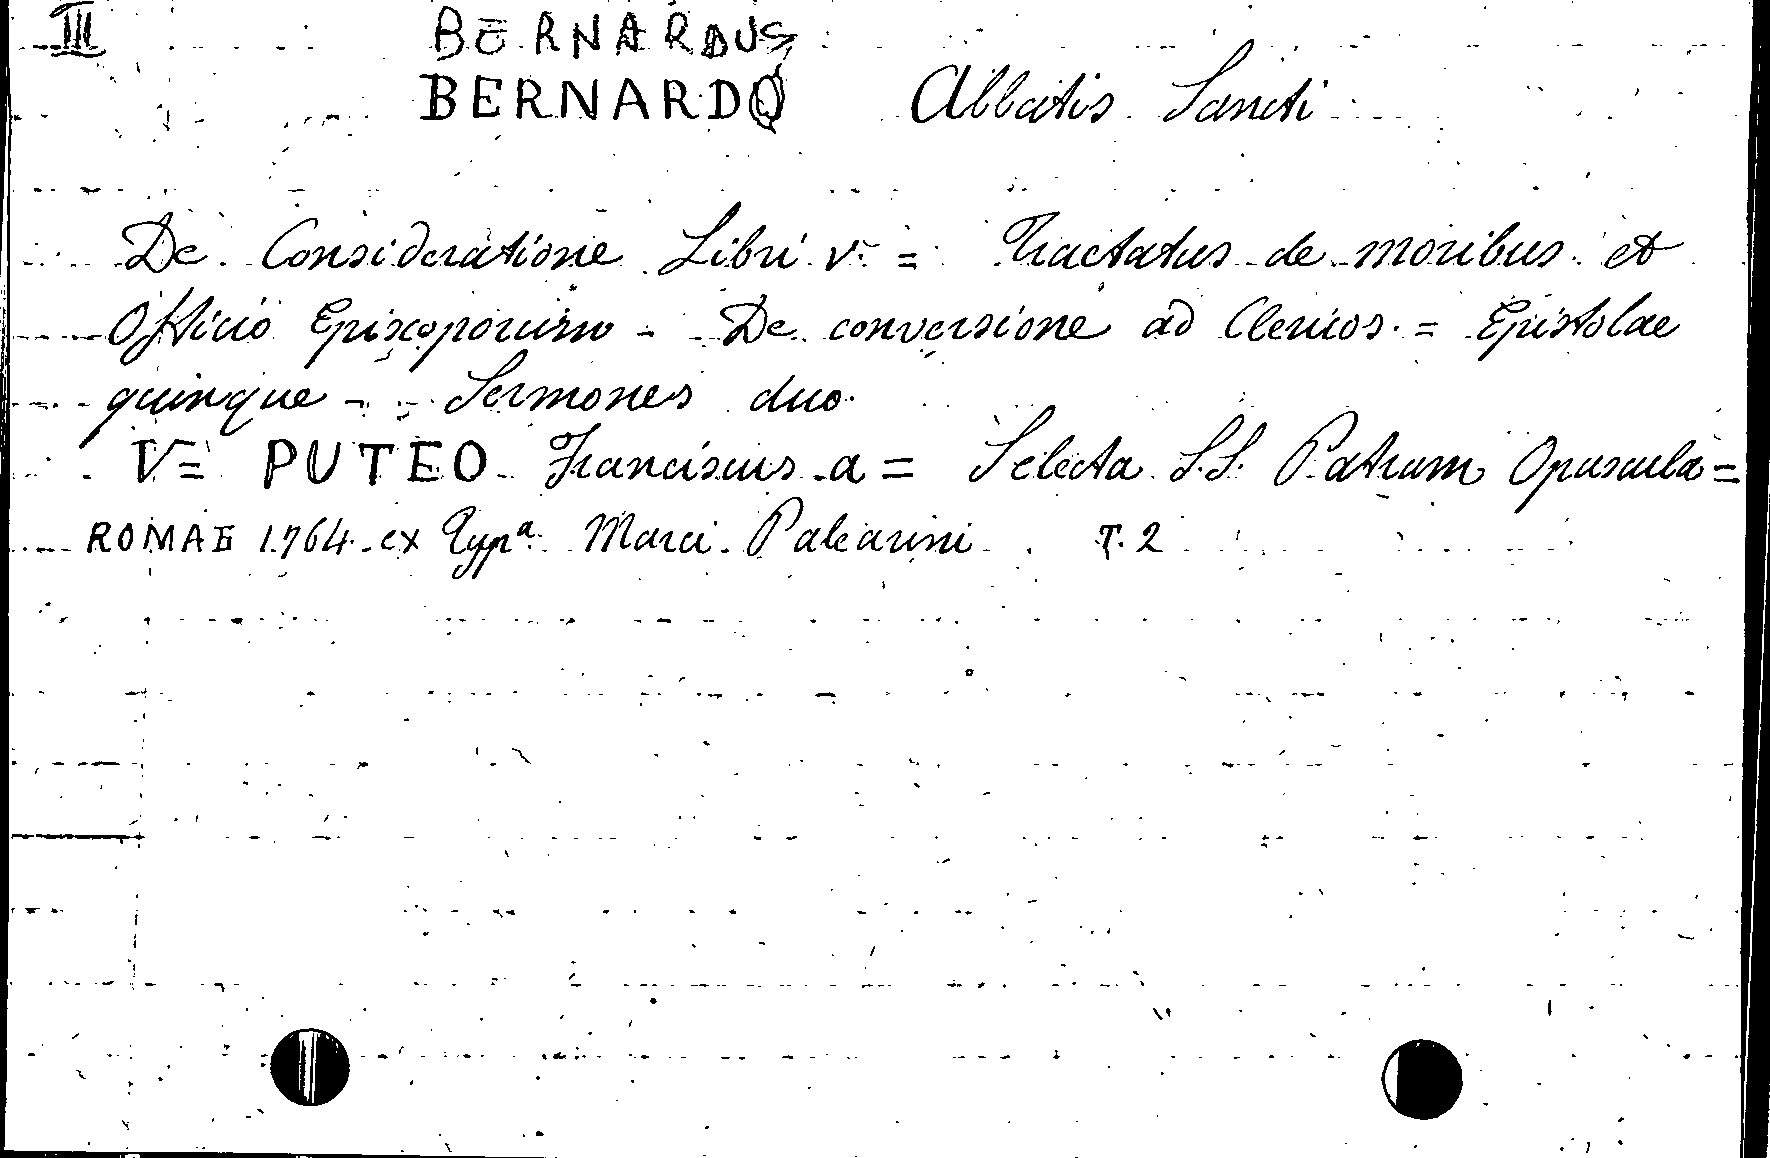 III BERNARDUS
BERNARDO Abbatis Sancti
De Consideratione Libri V. = Tractatus de moribus et
Officio Episcoporum - De conversione ad Clericos. = Epistolae
quinque - Sermones duo.
V= PUTEO Franciscus a = Selecta S.S. Patrum Opuscula =
ROMAE 1764 ex Typª Marci Palearini T. 2